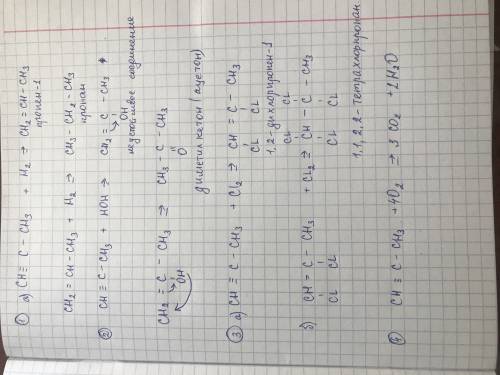 ① а) CH ≡ C – CH₃ + H₂ → CH₂ = CH – CH₃
пропен-1
CH₂ = CH – CH₃ + H₂ ⇒ CH₃ – CH₂ – CH₃
пропан
② CH ≡ C – CH₃ + HOH ⇒ CH₂ = C – CH₃
OH
неустойчивое соединение
CH₂ = C – CH₃ ⇒ CH₃ – C – CH₃
OH O
диметил кетон (ацетон)
③ а) CH ≡ C – CH₃ + Cl₂ ⇒ CH = C – CH₃
CL CL
1,2-дихлорпропен-1
CL CL
б) CH = C – CH₃ + CL₂ ⇒ CH – C – CH₃
CL CL CL CL
1,1,2,2-тетрахлорпропан
④ CH ≡ C – CH₃ + 4O₂ ⇒ 3 CO₂ + 2H₂O